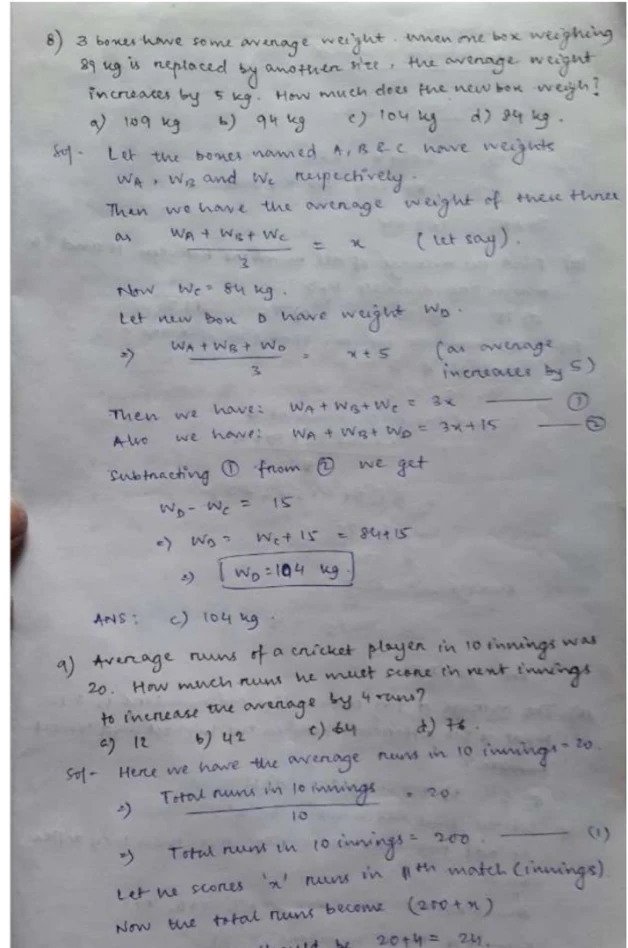 8) 3 boxes have some average weight. When one box weighing
89 kg is replaced by another size, the average weight
increases by 5 kg. How much does the new box weigh?
a) 109 kg b) 94 kg c) 104 kg d) 84 kg.
Sol- Let the boxes named A, B & C have weights
WA, WB and WC respectively.
Then we have the average weight of these three
as WA + WB + WC / 3 = x (let say).
Now WC = 84 kg.
Let new box D have weight WD.
=> WA + WB + WD / 3 = x + 5 (as average
increases by 5)
Then we have: WA + WB + WC = 3x —— ①
Also we have: WA + WB + WD = 3x + 15 —— ②
Subtracting ① from ② we get
WD - WC = 15
=> WD = WC + 15 = 84+15
=> WD = 104 kg.
ANS: c) 104 kg.
9) Average runs of a cricket player in 10 innings was
20. How much runs he must score in next innings
to increase the average by 4 runs?
a) 12 b) 42 c) 64 d) 76.
Sol- Here we have the average runs in 10 innings = 20.
=> Total runs in 10 innings / 10 = 20
=> Total runs in 10 innings = 200. —— (1)
Let he scores 'x' runs in 11th match (innings)
Now the total runs become (200 + x)
should be 20+4 = 24